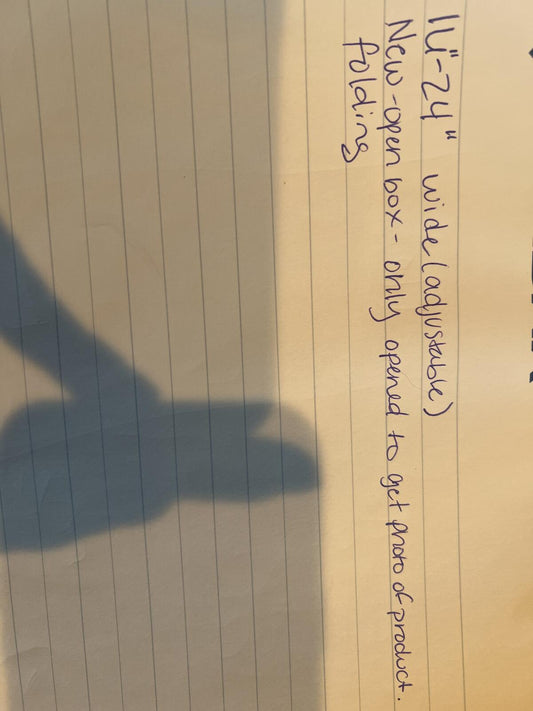 14"-24" wide (adjustable)
New-open box - only opened to get photo of product.
folding